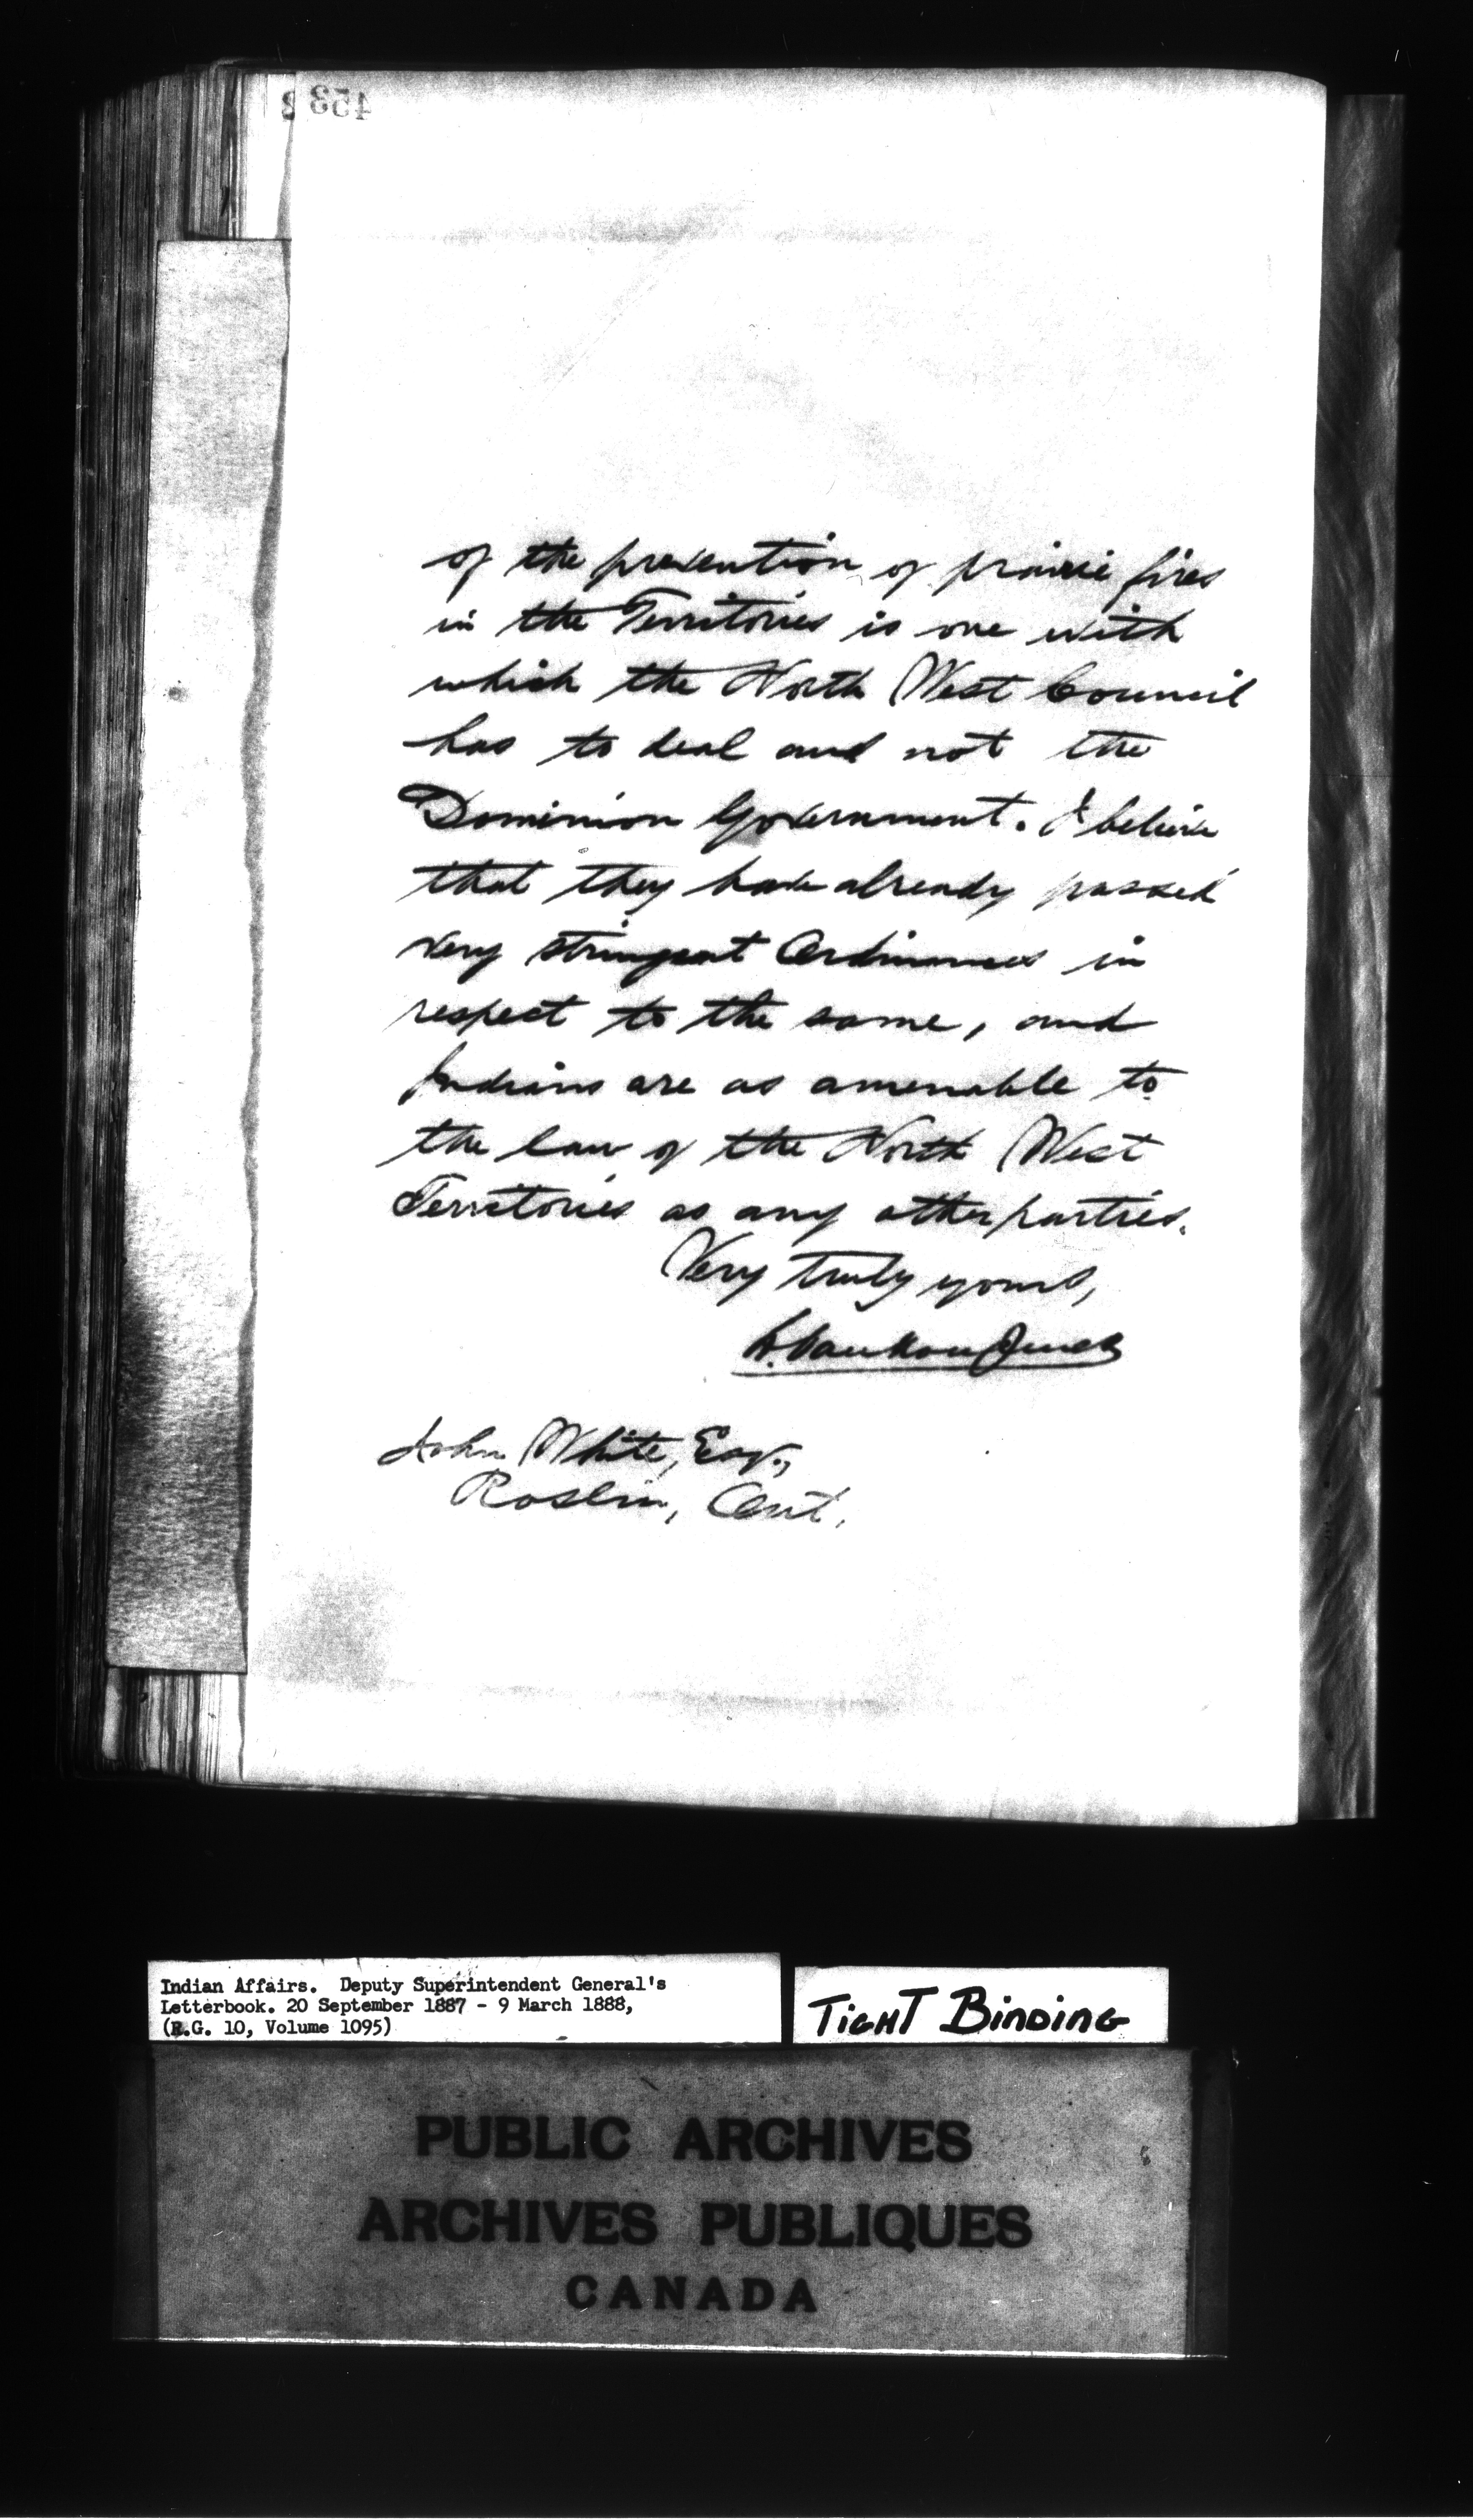 453
of the prevention of prairie fires
in the Territories is one with
which the North West Council
has to deal and not the
Dominion Government. I believe
that they have already passed
very stringent Ordinances in
respect to the same, and
Indians are as amenable to
the law of the North West
Territories as any other parties.
Very truly yours,
L. Vankoughnet
John White, Esq.,
Roslin, Ont.
Indian Affairs. Deputy Superintendent General's
Letterbook. 20 September 1887 - 9 March 1888,
(R.G. 10, Volume 1095)
TIGHT BINDING
PUBLIC ARCHIVES
ARCHIVES PUBLIQUES
CANADA